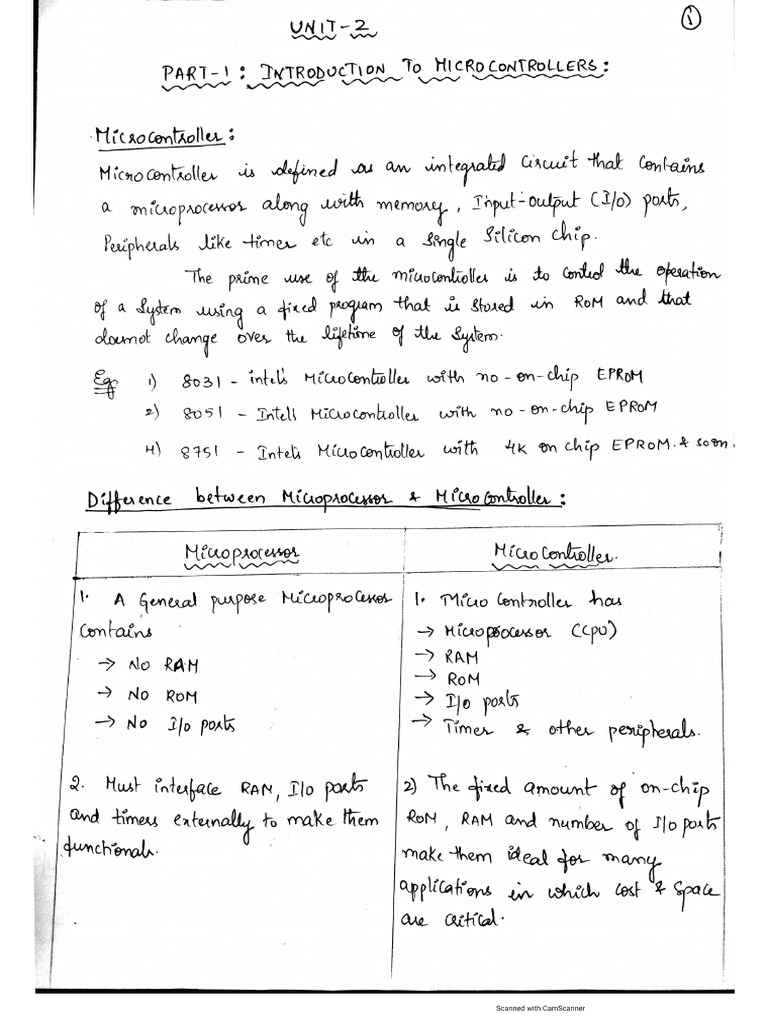 UNIT-2
1
PART-1: INTRODUCTION TO MICROCONTROLLERS:
Microcontroller:
Microcontroller is defined as an integrated circuit that contains
a microprocessor along with memory, Input-output (I/O) ports,
Peripherals like timer etc in a single silicon chip.
The prime use of the microcontroller is to control the operation
of a system using a fixed program that is stored in ROM and that
doesnot change over the lifetime of the system.
Eg 1) 8031 - intel's Microcontroller with no-on-chip EPROM
2) 8051 - Intel's Microcontroller with no-on-chip EPROM
4) 8751 - Intel's Microcontroller with 4K on chip EPROM & soon.
Difference between Microprocessor & Microcontroller:
Microprocessor
Microcontroller.
1. A General purpose Microprocessor
contains
→ No RAM
→ No ROM
→ No I/O ports
2. Must interface RAM, I/O ports
and timers externally to make them
functional.
1. Micro Controller has
→ Microprocessor (CPU)
→ RAM
→ ROM
→ I/O ports
→ Timer & other peripherals.
2) The fixed amount of on-chip
ROM, RAM and number of I/O ports
make them ideal for many
applications in which cost & space
are critical.
Scanned with CamScanner